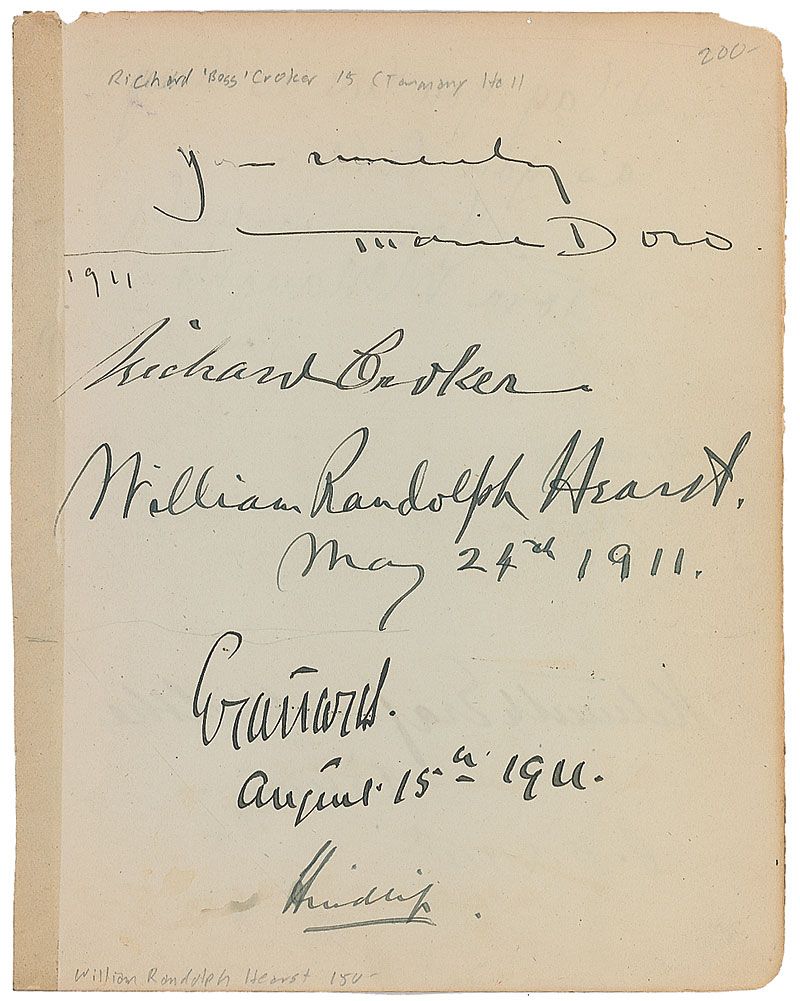 200-
Richard 'Boss' Croker 15 (Tammany Hall
Yours sincerely
Marie Doro.
1911
Richard Croker.
William Randolph Hearst.
May 24th 1911.
Granard.
August. 15th 1911.
Hindlip.
William Randolph Hearst 150-